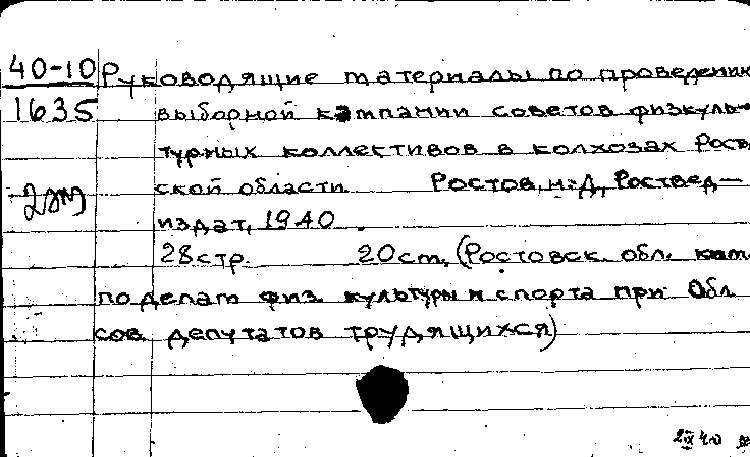 40-10 Руководящие материалы по проведению
1635 выборной кампании советов физкуль-
турных коллективов в колхозах Ростов
ской области Ростов, н-Д, Роствед-
издат, 1940.
28 стр. 20 cm, (Ростовск. обл. ком.
по делам физ. культуры и спорта при Обл
сов. депутатов трудящихся)